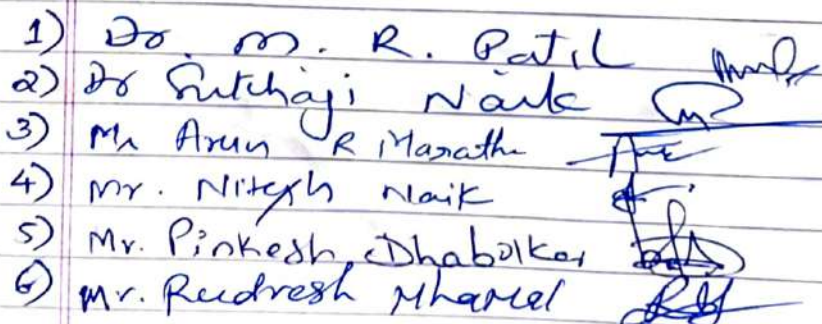 1) Dr. M. R. Patil
2) Dr Naik
3) Mr Arun R Marathe
4) Mr. Nitesh Naik
5) Mr. Pinkesh Dhabolkar
6) Mr. Rudresh Mhamal